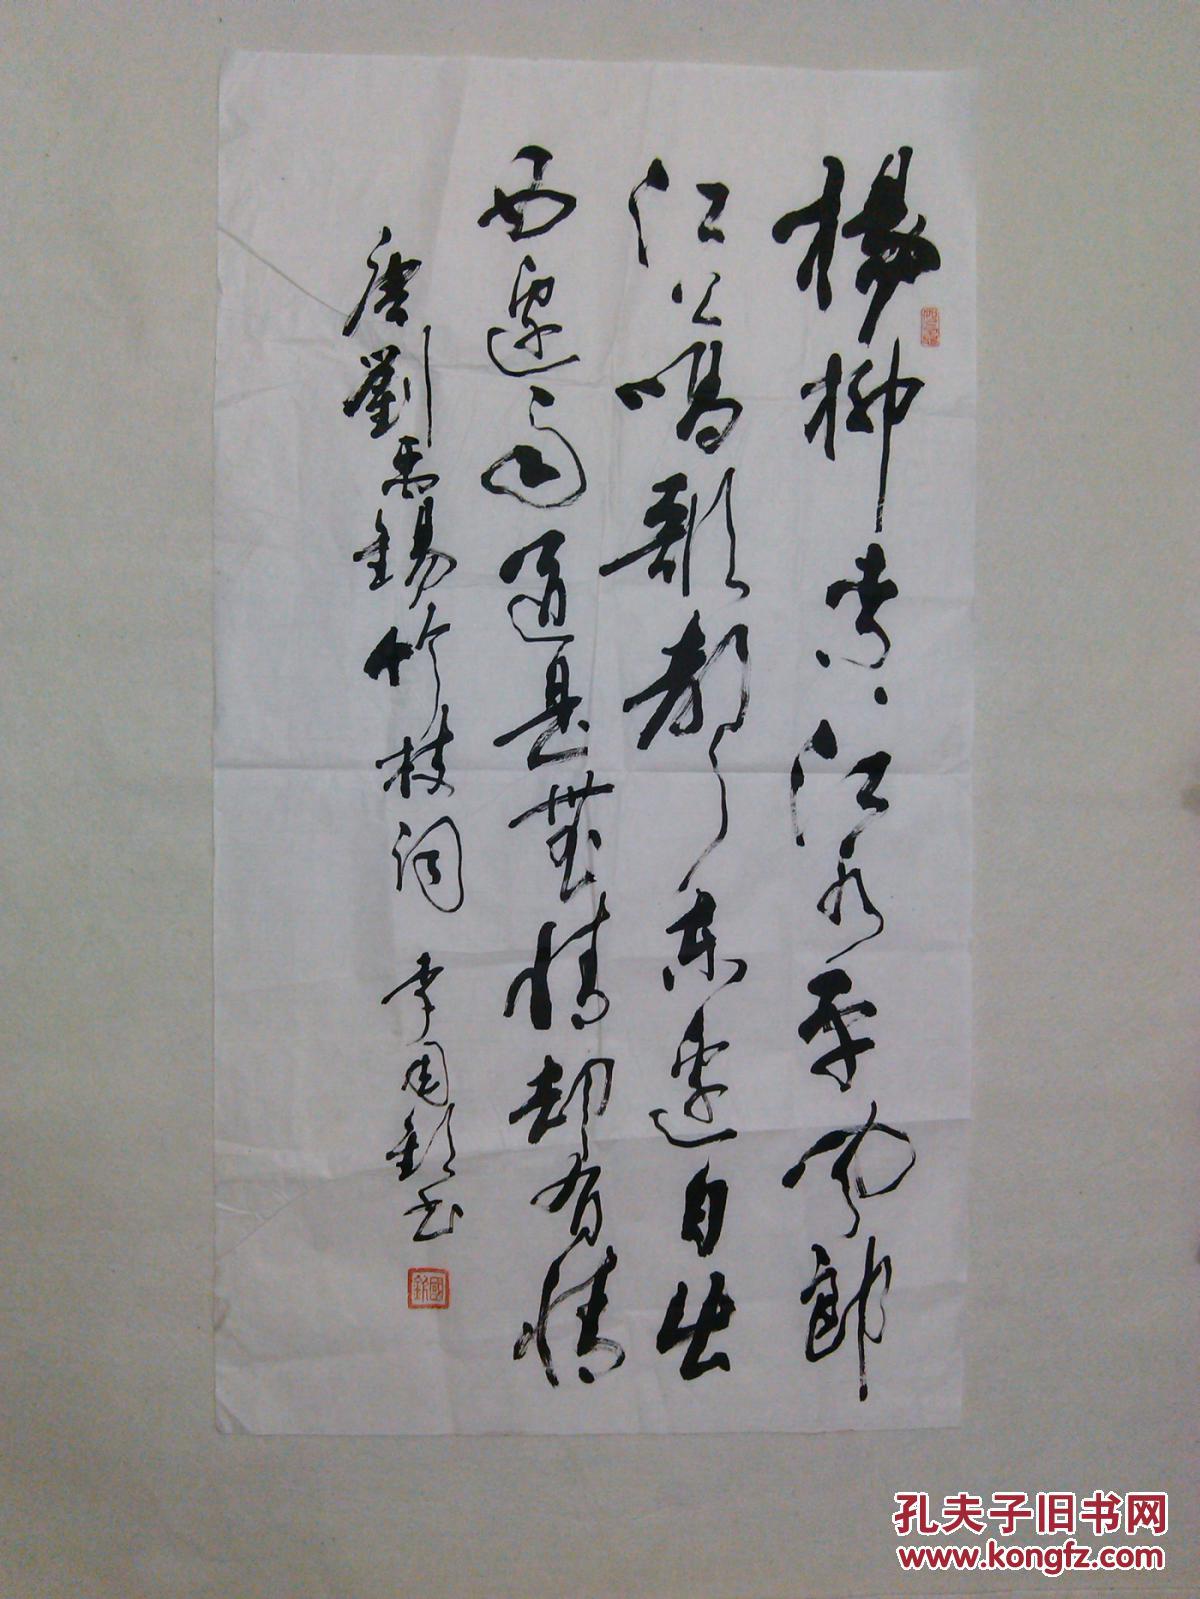 楊柳青、江水平聞郎
江上唱歌聲東邊日出
西邊雨道是無情却有情
唐劉禹錫竹枝詞 李國欽书
國欽
孔夫子旧书网
www.kongfz.com